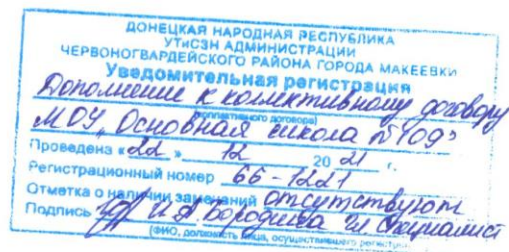 ДОНЕЦКАЯ НАРОДНАЯ РЕСПУБЛИКА
УТиСЗН АДМИНИСТРАЦИИ
ЧЕРВОНОГВАРДЕЙСКОГО РАЙОНА ГОРОДА МАКЕЕВКИ
Уведомительная регистрация
Дополнение к коллективному договору
(коллективного договора)
МОУ "Основная школа №109"
Проведена «22» 12 2021 г.
Регистрационный номер 66-1221
Отметка о наличии замечаний отсутствуют
Подпись И.А. Бородина гл. специалист
(ФИО, должность лица, осуществившего регистрацию)